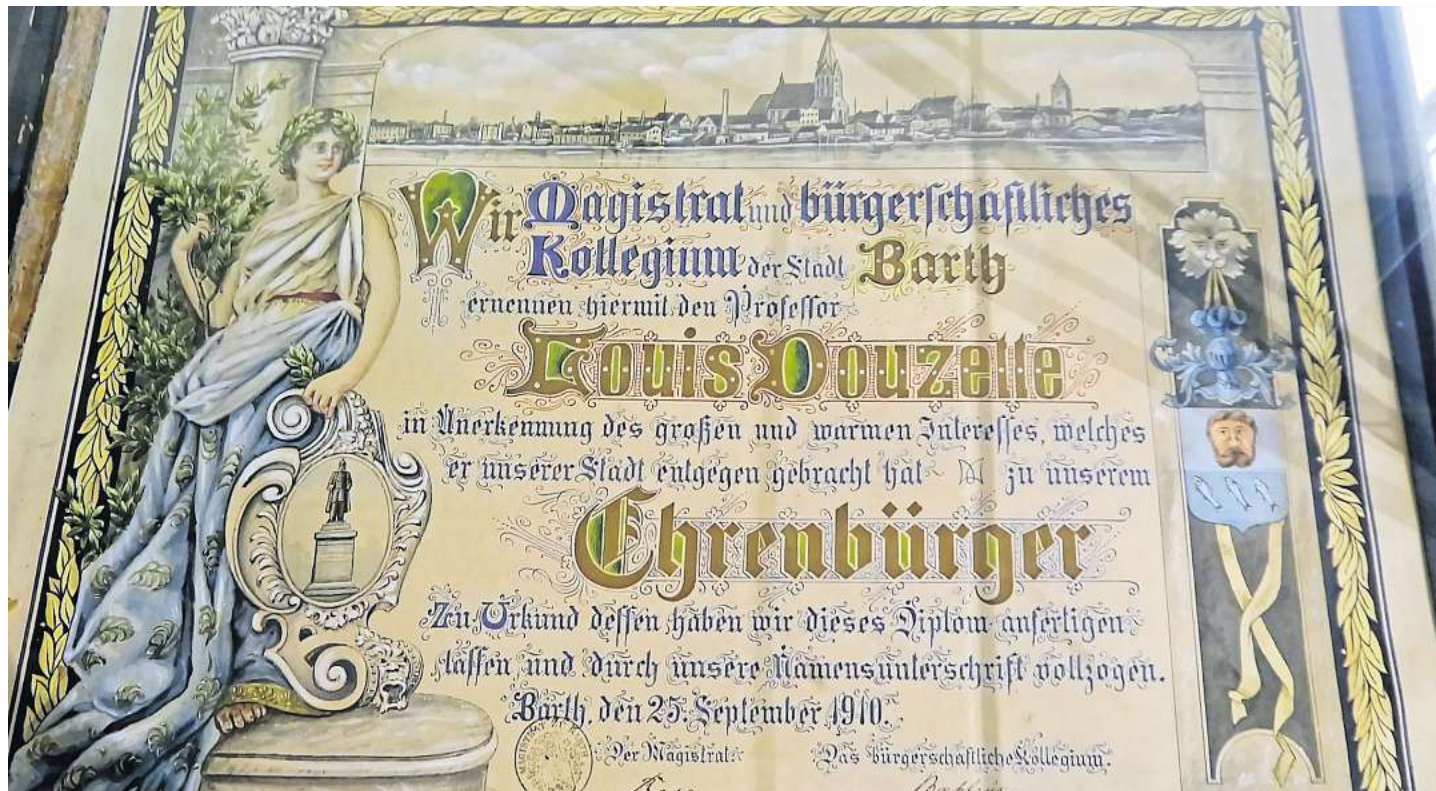 Wir Magistrat und bürgerschaftliches
Kollegium der Stadt Barth
ernennen hiermit den Professor
Louis Douzette
in Anerkennung des großen und warmen Interesses, welches
er unserer Stadt entgegen gebracht hat zu unserem
Ehrenbürger
Zu Urkund dessen haben wir dieses Diplom anfertigen
lassen und durch unsere Namensunterschrift vollzogen.
Barth, den 25. September 1910.
Der Magistrat. Das bürgerschaftliche Kollegium.